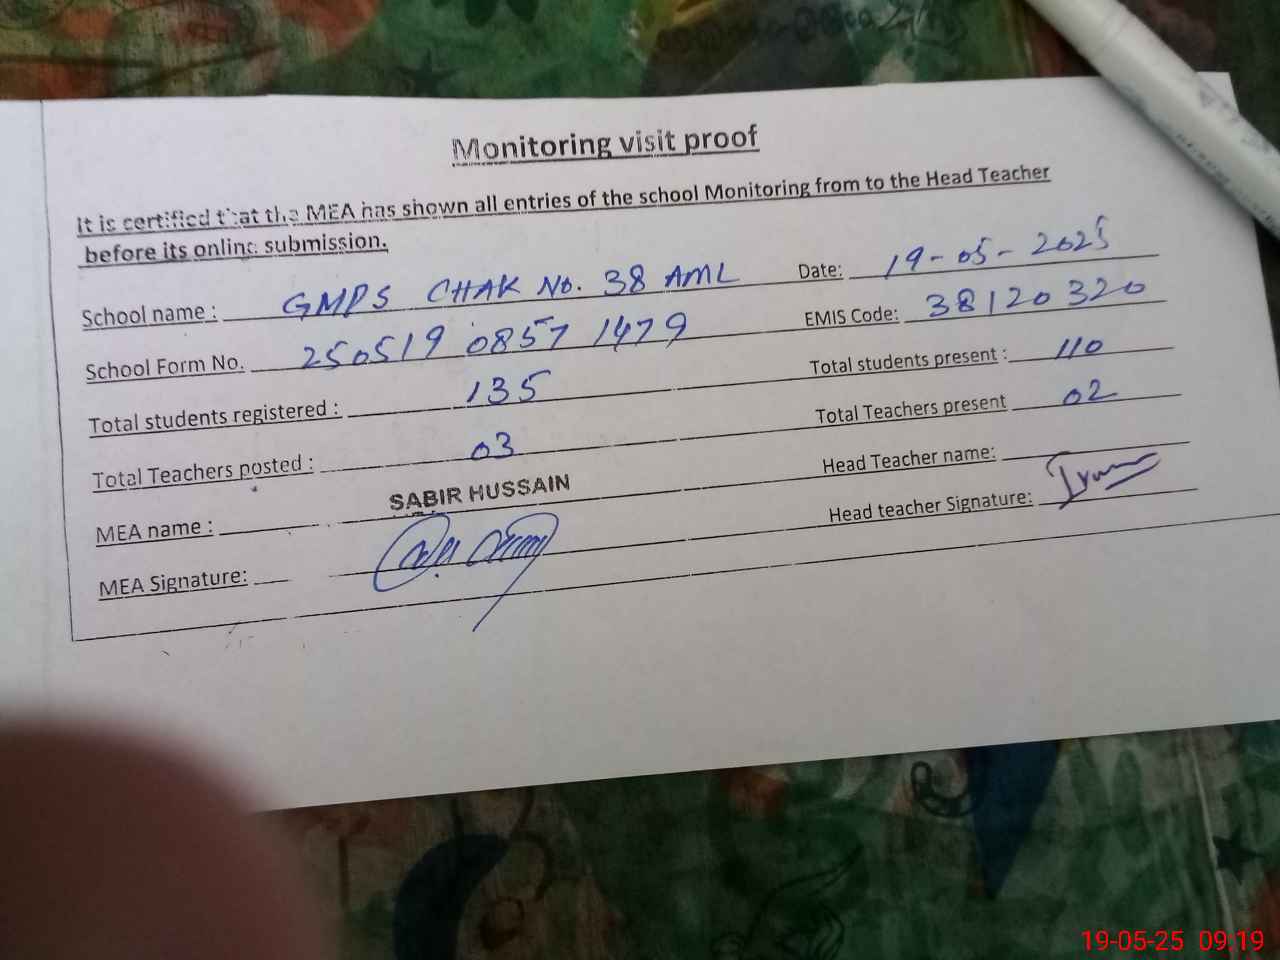 Monitoring visit proof
It is certified that the MEA has shown all entries of the school Monitoring from to the Head Teacher
before its online submission.
School name : GMPS CHAK No. 38 AML Date: 19-05-2025
School Form No. 250519 0857 1479 EMIS Code: 38120320
Total students registered : 135 Total students present : 110
Total Teachers posted : 03 Total Teachers present 02
MEA name : SABIR HUSSAIN Head Teacher name:
MEA Signature: Head teacher Signature:
19-05-25 09:19